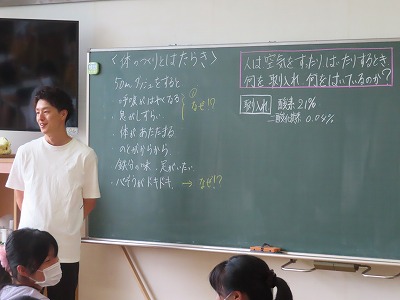 <体のつくりとはたらき>
50mダッシュをすると
・呼吸がはやくなる
① なぜ!?
・息がしずらい
・体があたたまる
・のどがからから
・鉄分の味、足がいたい
・バクバクドキドキ → なぜ!?
人は空気をすったりはいたりするとき
何を取り入れ何をはいているのか?
取り入れ 酸素 21%
二酸化炭素 0.04%